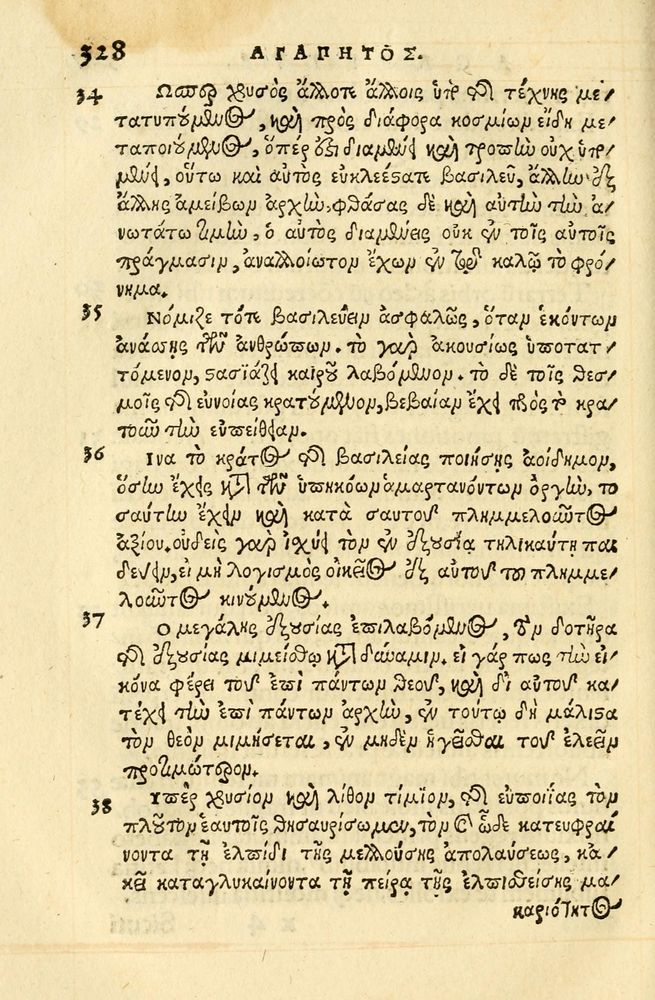 328 ΑΓΑΠΗΤΟΣ.
34 Ωσπερ χρυσὸς ἄλλοτε ἄλλοις ὑπὸ τῆς τέχνης με-
τατυπούμενος, καὶ πρὸς διάφορα κοσμίων εἴδη με-
ταποιούμενος, ὅπέρ ἐστι διαμένει καὶ τροπὴν οὐχ ὑπο-
μένει, οὕτω καὶ αὐτὸς εὐκλεέστατε βασιλεῦ, ἄλλην ἐξ
ἄλλης ἀμείβων ἀρχὴν, φθάσας δὲ καὶ αὐτὴν τὴν ἀ-
νωτάτω τιμὴν, ὁ αὐτὸς διαμένεις οὐκ ἐν τοῖς αὐτοῖς
πράγμασιν, ἀναλλοίωτον ἔχων ἐν τῷ καλῷ τὸ φρό-
νημα.
35 Νόμιζε τότε βασιλεύειν ἀσφαλῶς, ὅταν ἑκόντων
ἀνάσσῃς τῶν ἀνθρώπων. τὸ γὰρ ἀκουσίως ὑποτατ-
τόμενον, στασιάζει καιροῦ λαβόμενον. τὸ δὲ τοῖς θεσ-
μοῖς τῆς εὐνοίας κρατούμενον, βεβαίαν ἔχει πρὸς τὸ κρα-
τοῦν τὴν εὐπείθειαν.
36 Ινα τὸ κράτος τῆς βασιλείας ποιήσῃς ἀοίδημον,
ὅσην ἔχεις κατὰ τῶν ὑπηκόων ἁμαρτανόντων ὀργὴν, το
σαύτην ἔχειν καὶ κατὰ σαυτοῦ πλημμελοῦντος
ἀξίου. οὐδεὶς γὰρ ἰχύει τὸν ἐν ἐξουσίᾳ τηλικαύτῃ παι
δεύειν, εἰ μὴ λογισμὸς οἰκεῖος ἐξ αὐτοῦ τοῦ πλημμε-
λοῦντος κινούμενος.
37 Ο μεγάλης ἐξουσίας ἐπιλαβόμενος, τὸν δοτῆρα
τῆς ἐξουσίας μιμείσθω κατὰ δύναμιν. εἰ γάρ πως τὴν εἰ-
κόνα φέρει τοῦ ἐπὶ πάντων θεοῦ, καὶ δι αὐτοῦ κα-
τέχει τὴν ἐπὶ πάντων ἀρχὴν, ἐν τούτῳ δὴ μάλιστα
τὸν θεὸν μιμήσεται, ἐν μηδὲν ἡγεῖσθαι τοῦ ἐλεεῖν
προτιμώτερον.
38 Υπὲρ χρυσίον καὶ λίθον τίμιον, τῆς εὐποιΐας τὸν
πλοῦτον ἑαυτοῖς θησαυρίσωμεν, τὸν καὶ ὧδε κατευφραί
νοντα τῇ ἐλπίδι τῆς μελλούσης ἀπολαύσεως, κἀ-
κεῖ καταγλυκαίνοντα τῇ πείρᾳ τῆς ἐλπισθείσης μα-
καριότητος